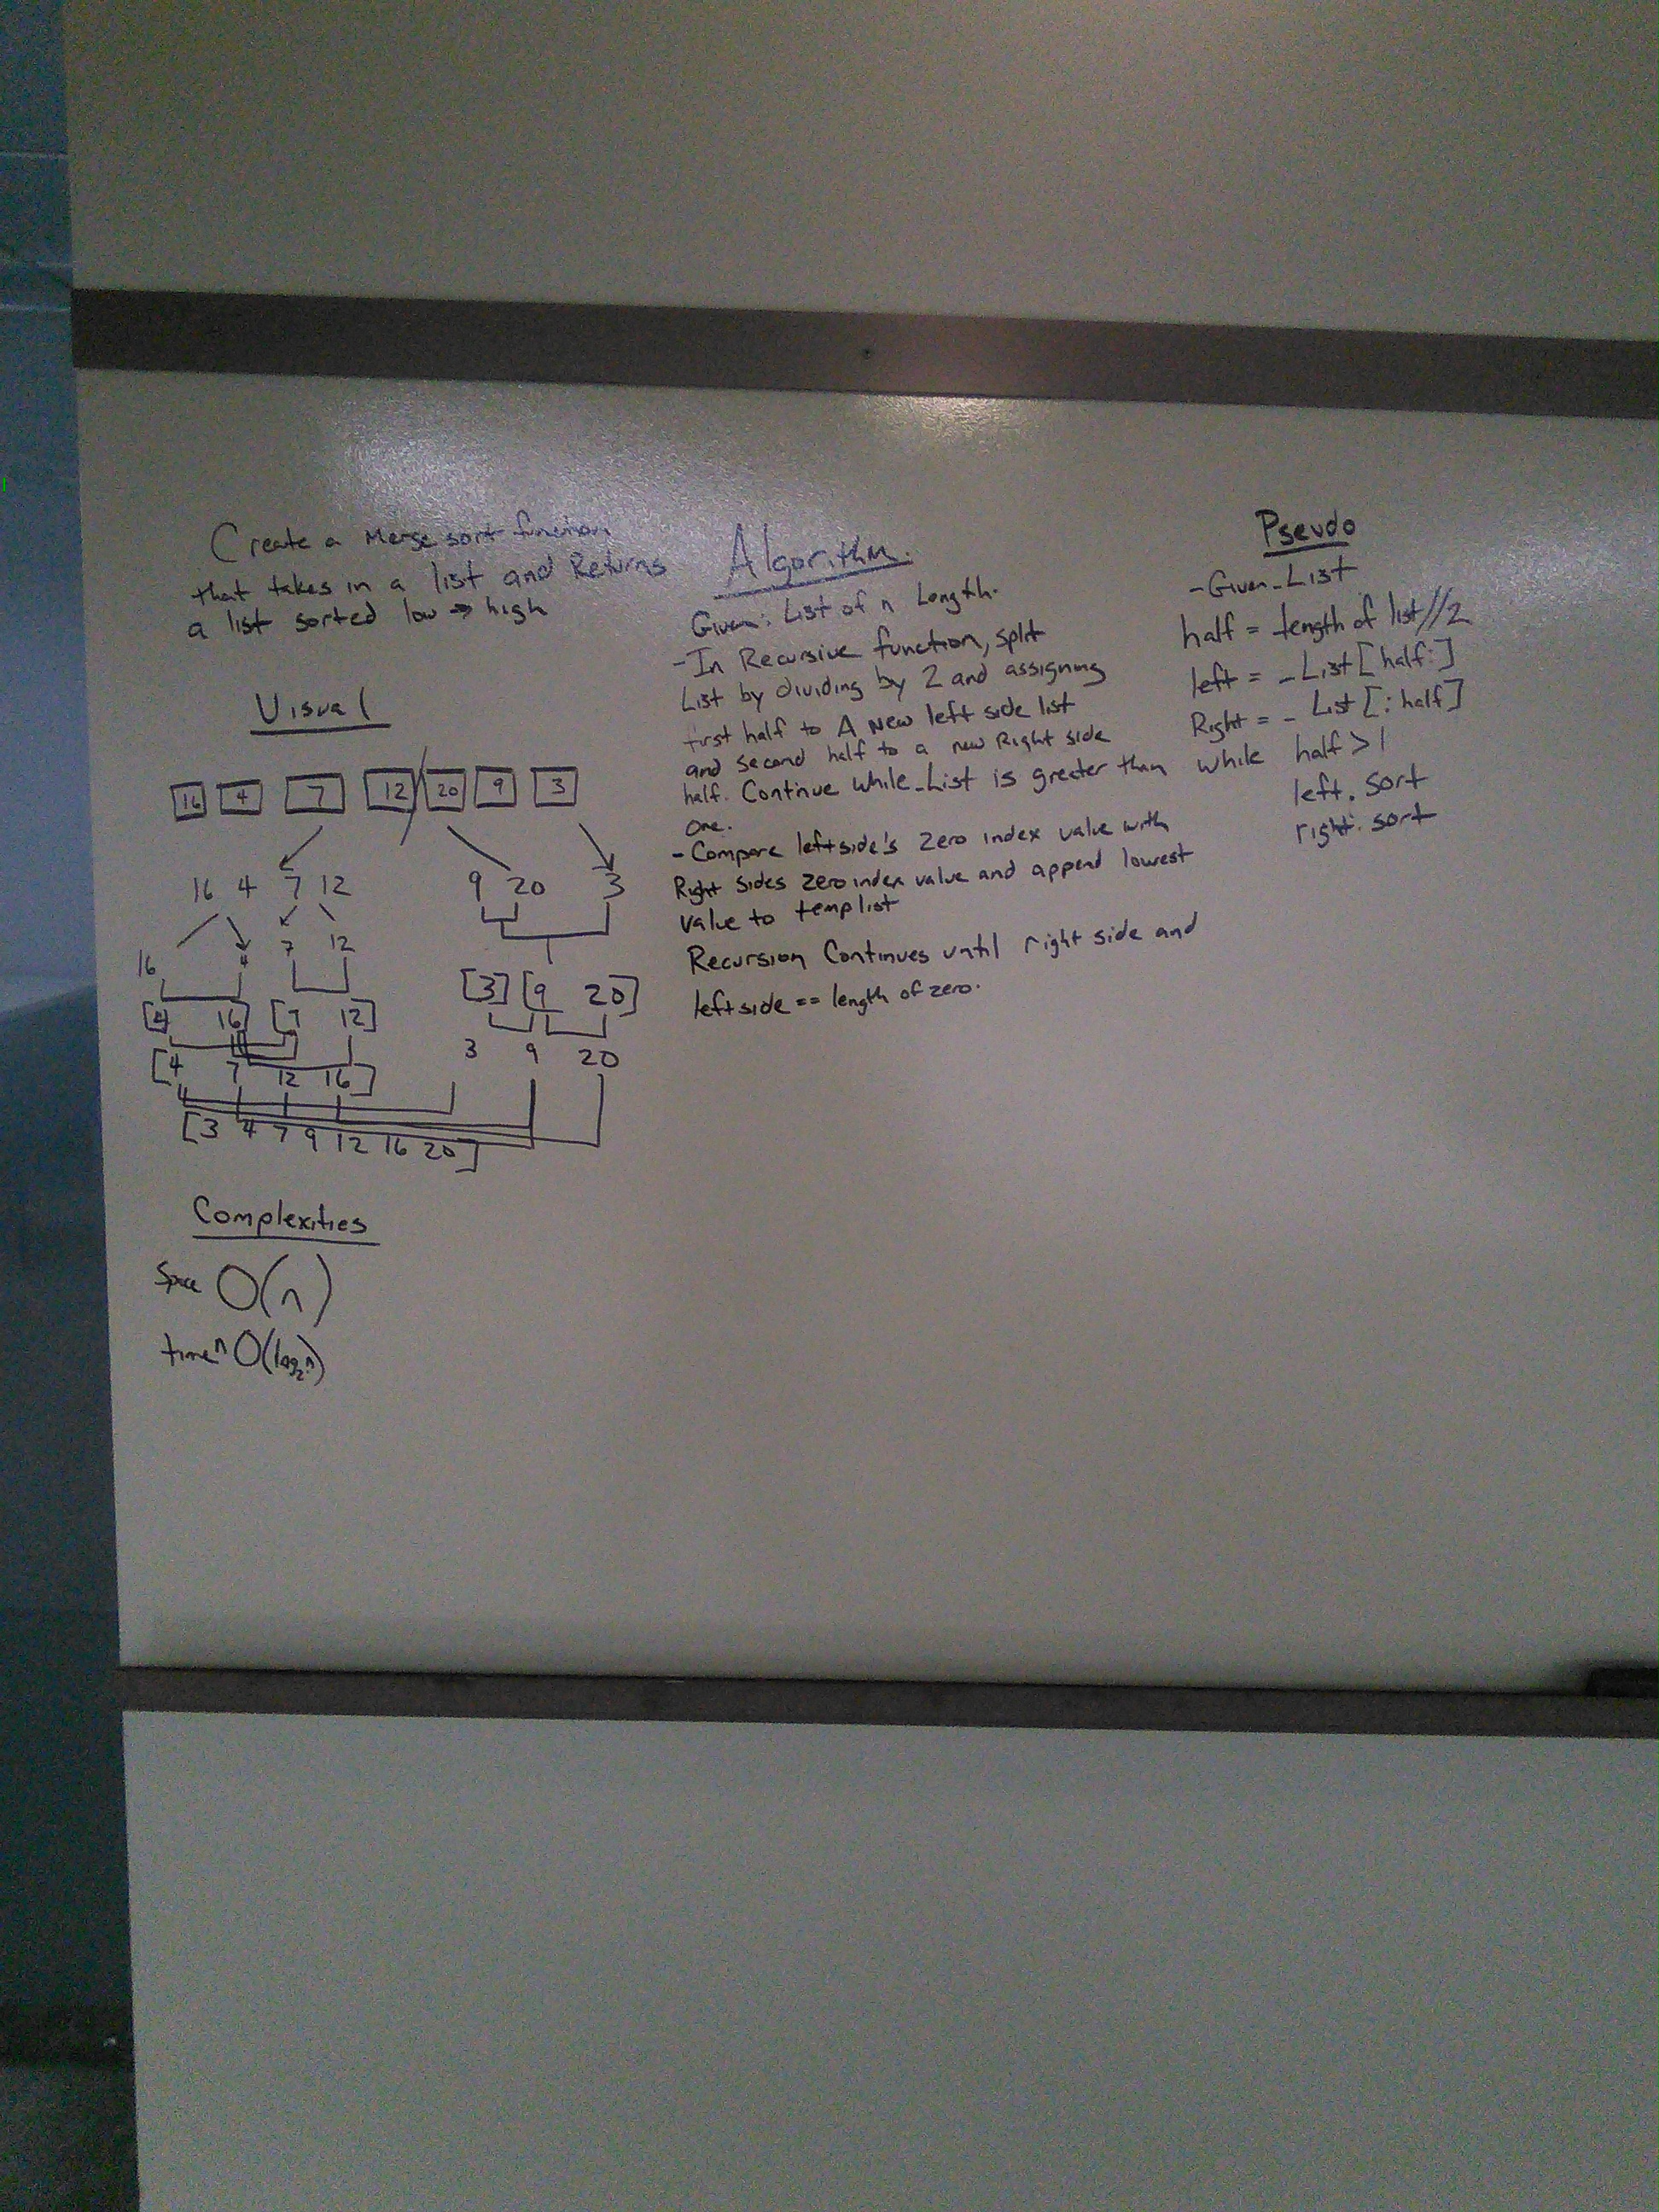 Create a Merge sort function
that takes in a list and Returns
a list sorted low → high
Visual
16 4 7 12 20 9 3
16 4 7 12 9 20 3
16 4 7 12
[3] [9 20]
[4 16] [7 12]
3 9 20
[4 7 12 16]
[3 4 7 9 12 16 20]
Complexities
Space O(n)
time n O(log₂n)
Algorithm
Given: List of n Length.
-In Recursive function, split
List by dividing by 2 and assigning
first half to A New left side list
and second half to a new Right side
half. Continue while_List is greater than
one.
-Compare leftside's Zero index value with
Right sides zero index value and append lowest
value to templist
Recursion Continues until right side and
leftside == length of zero.
Pseudo
-Given_List
half = length of list//2
left = _List[half:]
Right = _List[:half]
while half > 1
left. sort
right. sort